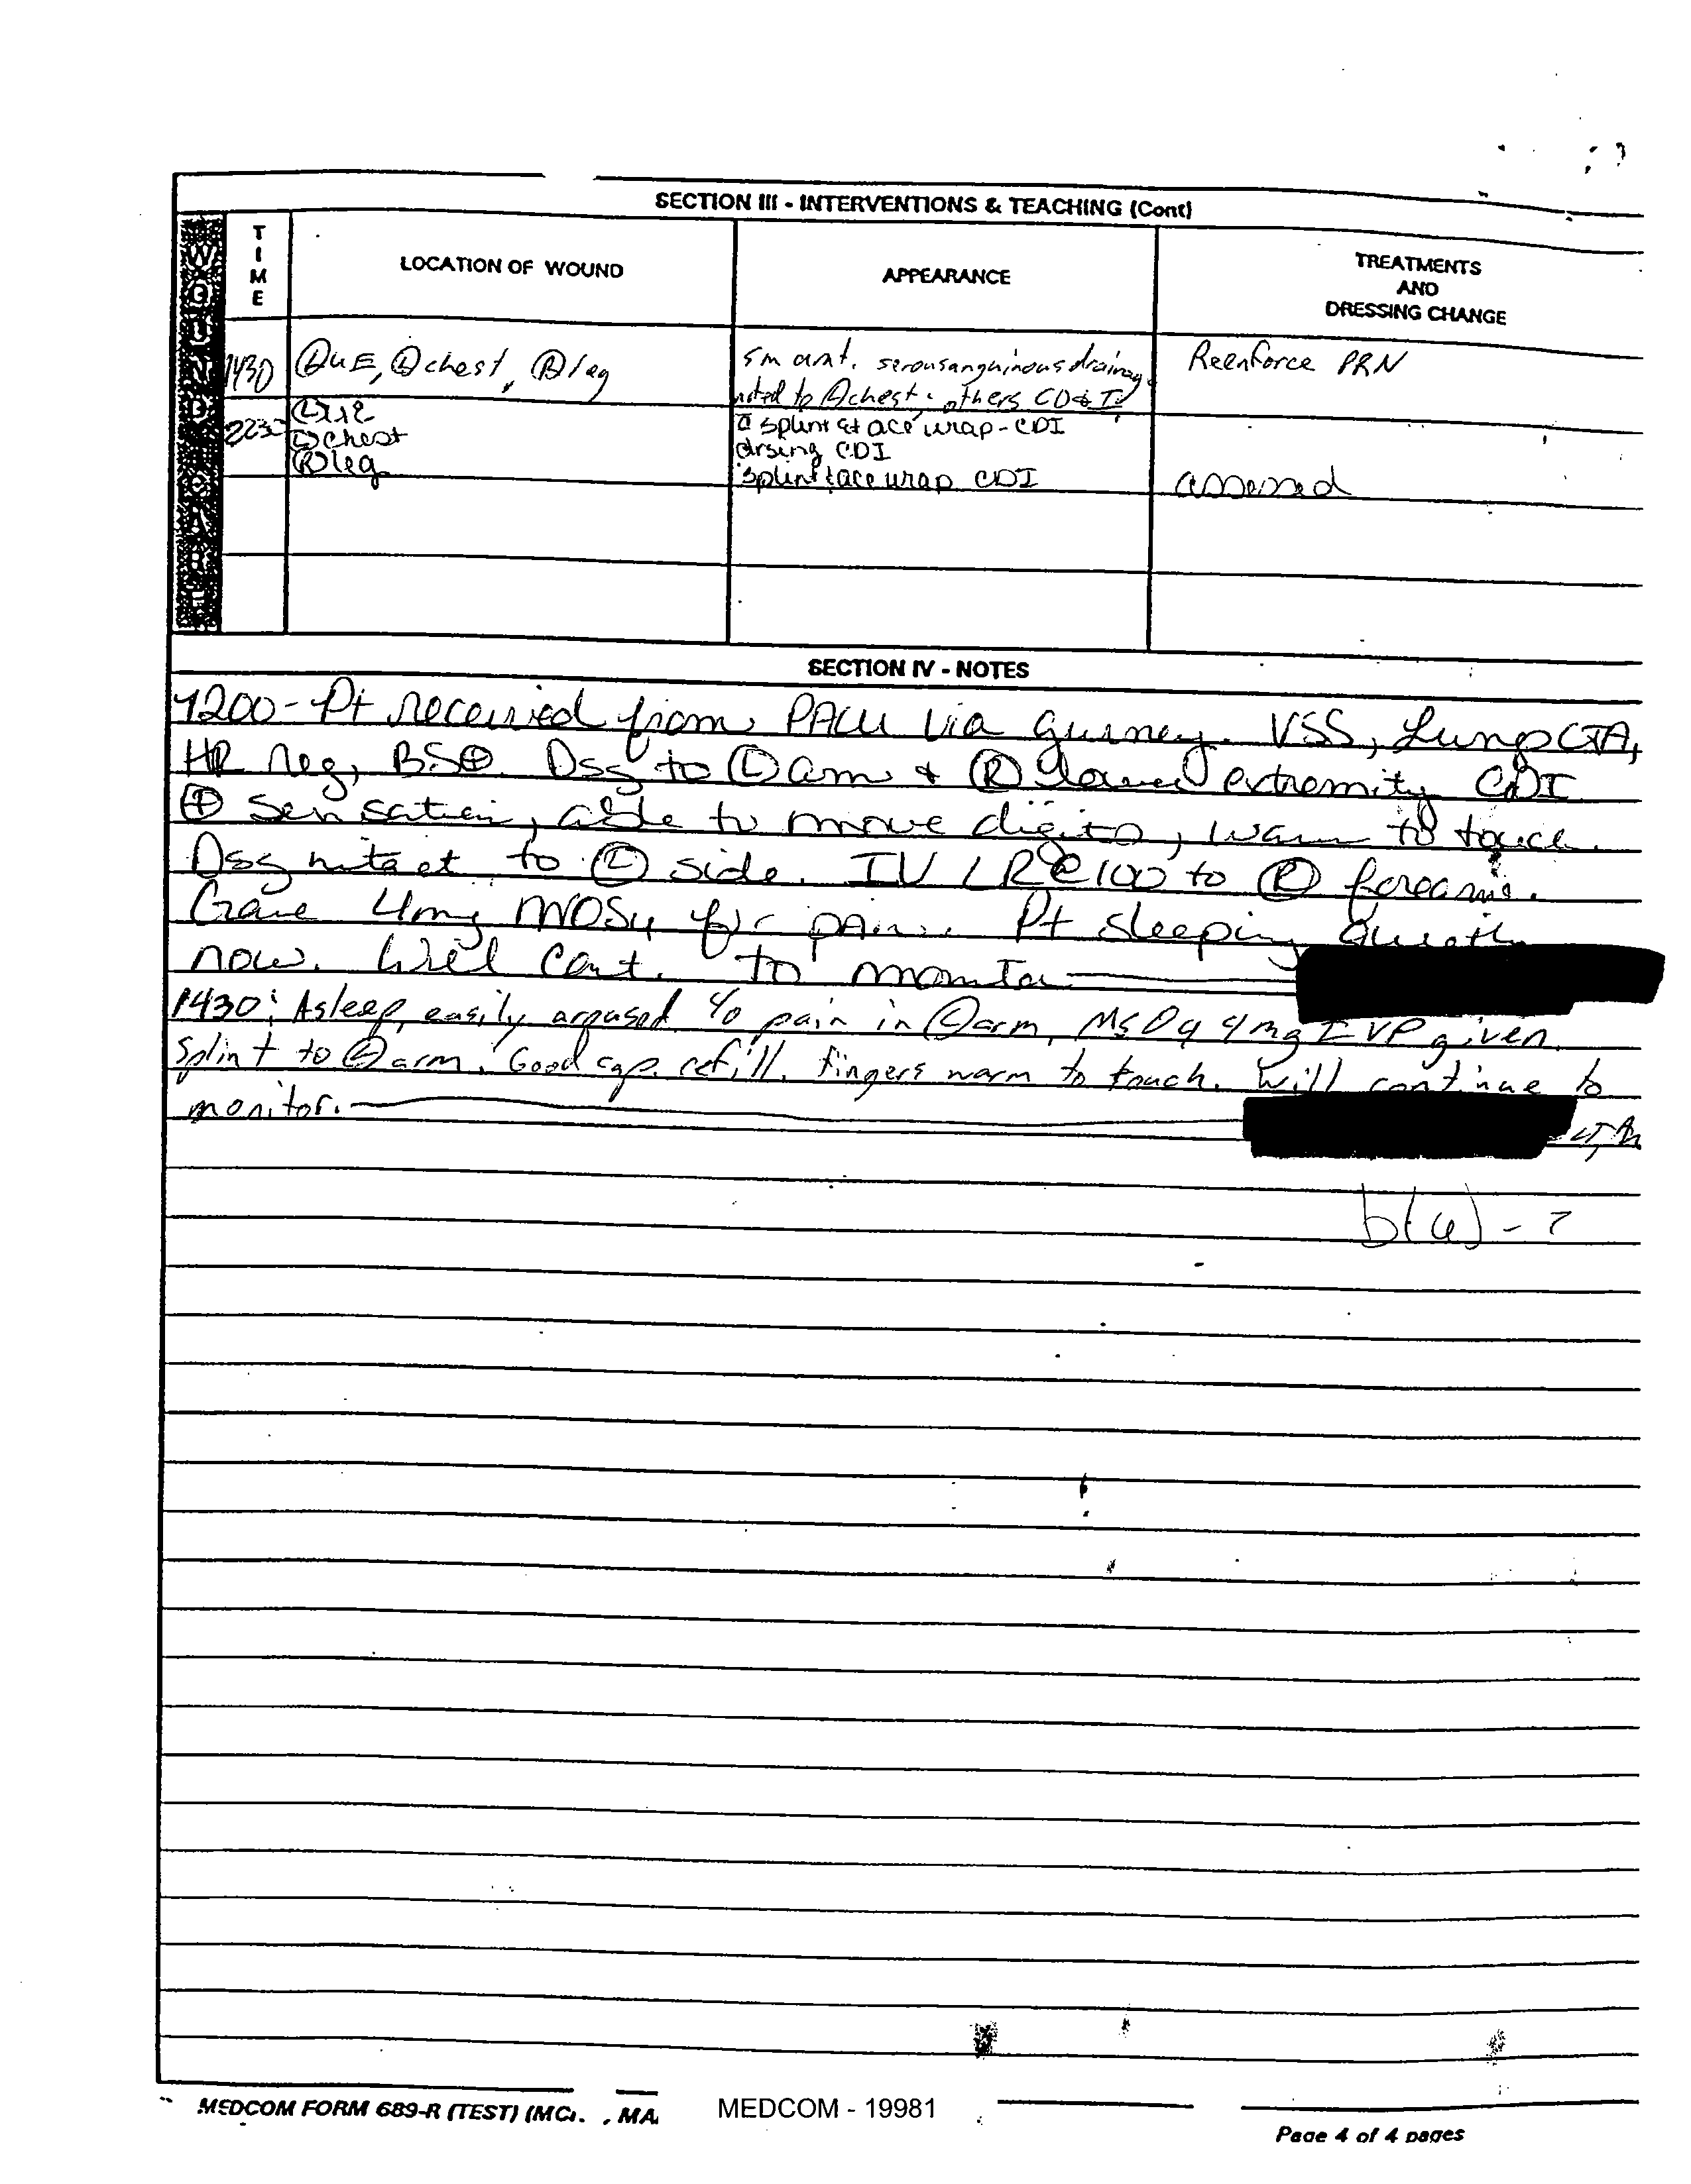 SECTION III - INTERVENTIONS & TEACHING (Cont)
WOUND CARE
TIME
LOCATION OF WOUND
APPEARANCE
TREATMENTS
AND
DRESSING CHANGE
1430 Ⓛ UE, Ⓛ chest, Ⓡ leg
sm amt. serousanguinous drainage
noted to Ⓛ chest; others CD&I
Reenforce PRN
2230 Ⓛ UE
Ⓛ chest
Ⓡ leg
splint & ace wrap - CDI
drsing CDI
splint & ace wrap CDI
assessed
SECTION IV - NOTES
1200 - Pt received from PACU via gurney. VSS, Lungs CTA,
HR reg, BS⊕. Dsg to Ⓛ arm + Ⓡ lower extremity CDI
⊕ Sensation, able to move digits, warm to touch.
Dsg intact to Ⓛ side. IV LR @ 100 to Ⓡ forearm.
Gave 4mg MOSy for pain. Pt sleeping quietly
now. Will cont. to monitor
1430: Asleep, easily arousod. c/o pain in Ⓛ arm, MSO4 4mg IVP given.
Splint to Ⓛ arm. Good cap. refill. Fingers warm to touch. Will continue to
monitor.
b(6) - 2
MEDCOM FORM 689-R (TEST) (MC) , MA
MEDCOM - 19981
Page 4 of 4 pages